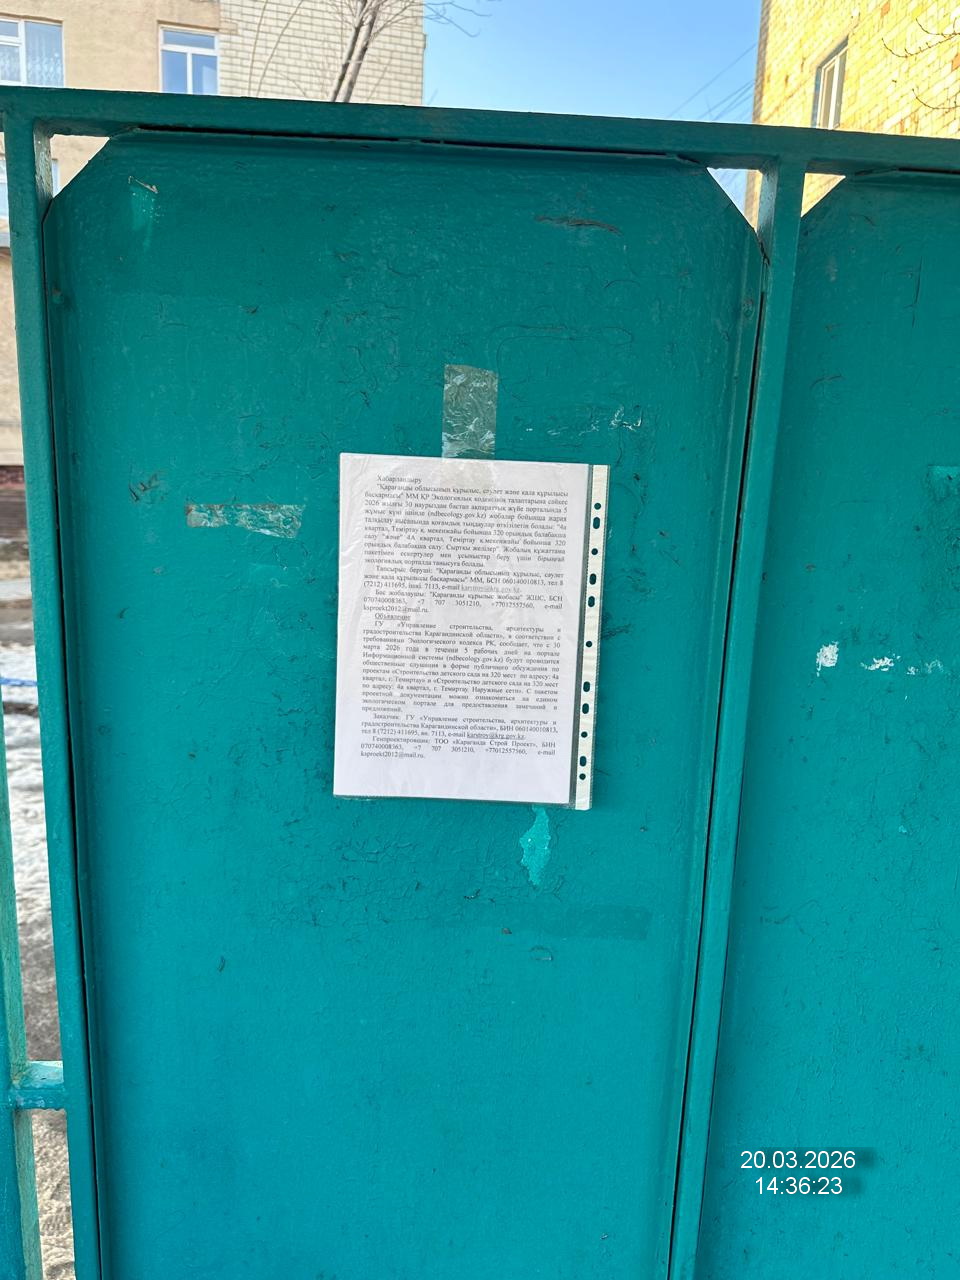 Хабарландыру
"Қарағанды облысының құрылыс, сәулет және қала құрылысы
басқармасы" ММ ҚР Экологиялық кодексінің талаптарына сәйкес
2026 жылғы 30 наурыздан бастап ақпараттық жүйе порталында 5
жұмыс күні ішінде (ndbecology.gov.kz) жобалар бойынша жария
талқылау нысанында қоғамдық тыңдаулар өткізілетін болады: "4а
квартал, Теміртау қ. мекенжайы бойынша 320 орындық балабақша
салу "және" 4А квартал, Теміртау қ.мекенжайы бойынша 320
орындық балабақша салу. Сыртқы желілер". Жобалық құжаттама
пакетімен ескертулер мен ұсыныстар беру үшін бірыңғай
экологиялық порталда танысуға болады.
Тапсырыс беруші: "Қарағанды облысының құрылыс, сәулет
және қала құрылысы басқармасы" ММ, БСН 060140010813, тел 8
(7212) 411695, ішкі. 7113, e-mail karstroy@krg.gov.kz.
Бас жобалаушы: "Қарағанды құрылыс жобасы" ЖШС, БСН
070740008363, +7 707 3051210, +77012557560, e-mail
ksproekt2012@mail.ru.
Объявление
ГУ «Управление строительства, архитектуры и
градостроительства Карагандинской области», в соответствии с
требованиями Экологического кодекса РК, сообщает, что с 30
марта 2026 года в течении 5 рабочих дней на портале
Информационной системы (ndbecology.gov.kz) будут проводится
общественные слушания в форме публичного обсуждения по
проектам «Строительство детского сада на 320 мест по адресу: 4а
квартал, г. Темиртау» и «Строительство детского сада на 320 мест
по адресу: 4а квартал, г. Темиртау. Наружные сети». С пакетом
проектной документации можно ознакомиться на едином
экологическом портале для предоставления замечаний и
предложений.
Заказчик: ГУ «Управление строительства, архитектуры и
градостроительства Карагандинской области», БИН 060140010813,
тел 8 (7212) 411695, вн. 7113, e-mail karstroy@krg.gov.kz.
Генпроектировщик: ТОО «Караганда Строй Проект», БИН
070740008363, +7 707 3051210, +77012557560, e-mail
ksproekt2012@mail.ru.
20.03.2026
14:36:23